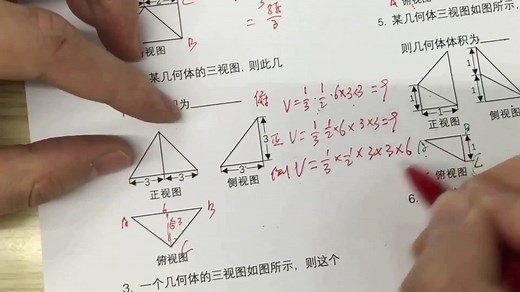 俯视图
B
8π
3
A
俯视图
5. 某几何体三视图如图所示,
则几何体体积为
某几何体的三视图,则此几
积为
俯 V=1/3·1/2·6×3×3=9
正 V=1/3·1/2×6×3×3=9
侧 V=1/3×1/2×3×3×6
3
3
3
正视图
3
侧视图
A
B
3
C
俯视图
1
1
1
正视图
1
1
侧视图
A
B
1
C
俯视图
6.
3. 一个几何体的三视图如图所示,则这个